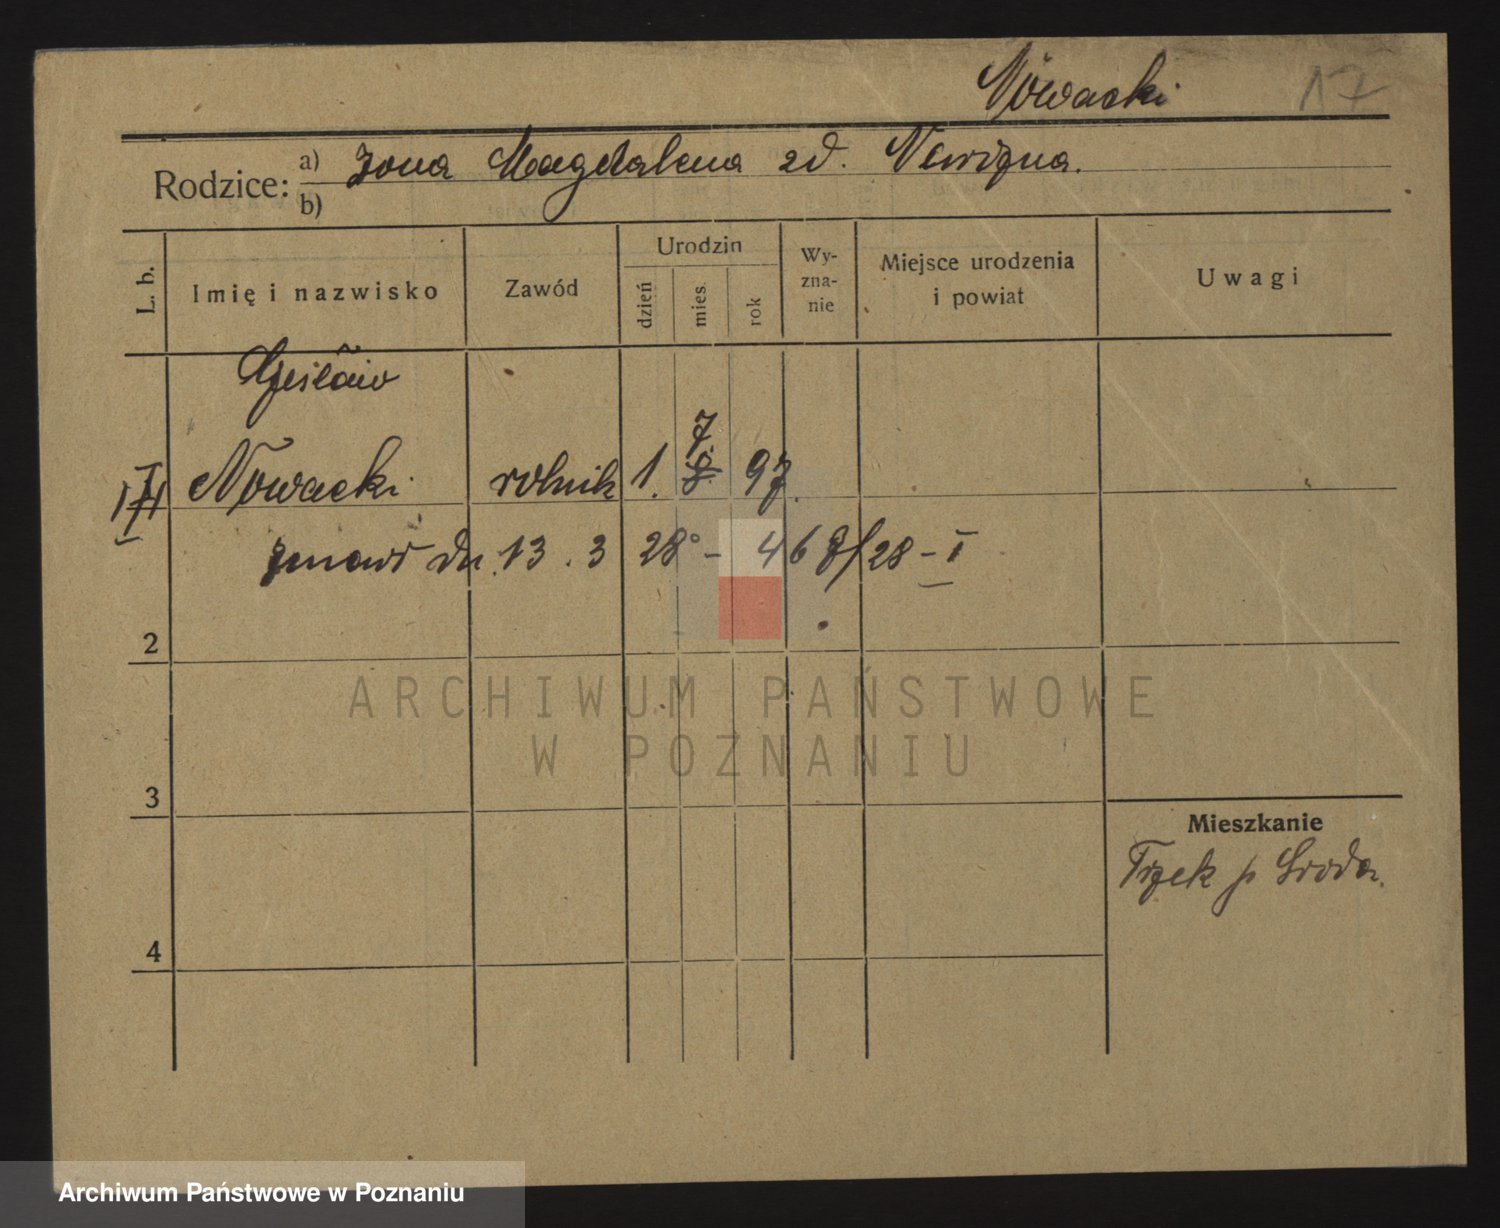 Nowacki 17
Rodzice: a) Żona Magdalena zd.
b)
L. b. Imię i nazwisko Zawód Urodzin dzień mies. rok Wy-zna-nie Miejsce urodzenia i powiat Uwagi
Czesław
Nowacki rolnik 1. 7. 8. 97.
zmarł dn. 13. 3 28 - 46 /28 - I
2
ARCHIWUM PAŃSTWOWE
W POZNANIU
3
Mieszkanie
Trzek p Środa.
4
Archiwum Państwowe w Poznaniu